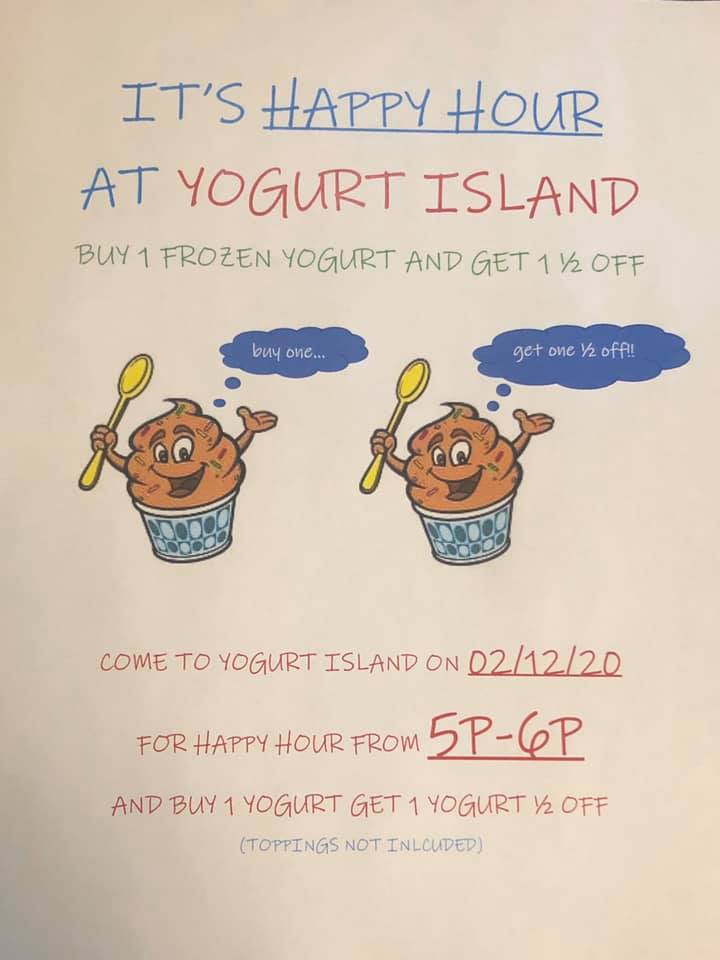 IT'S HAPPY HOUR
AT YOGURT ISLAND
BUY 1 FROZEN YOGURT AND GET 1 ½ OFF
buy one...
get one ½ off!!
COME TO YOGURT ISLAND ON 02/12/20
FOR HAPPY HOUR FROM 5P-6P
AND BUY 1 YOGURT GET 1 YOGURT ½ OFF
(TOPPINGS NOT INLCUDED)